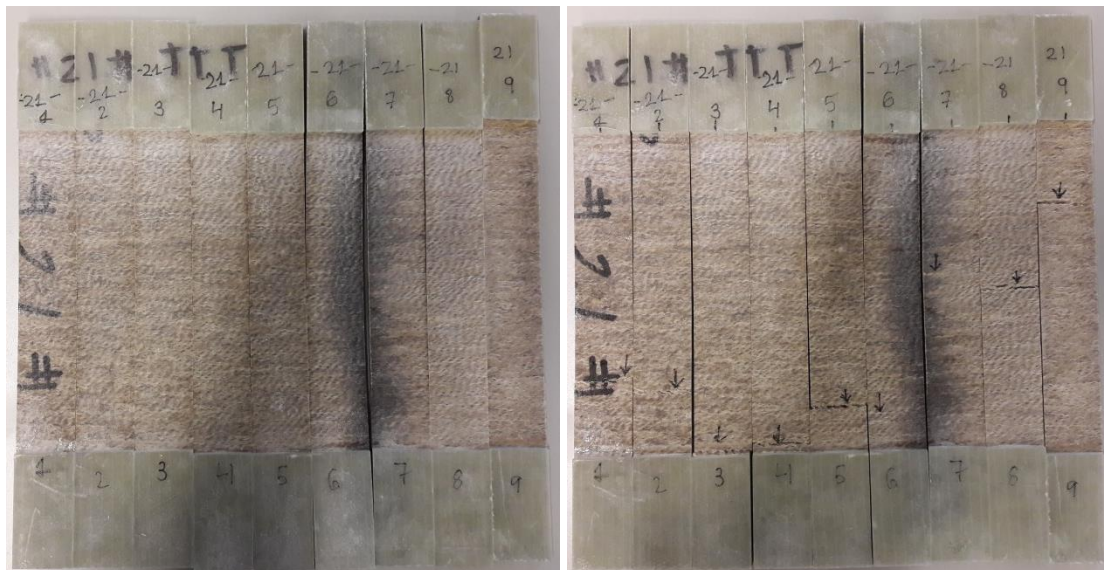 #21# TTT
-21- -21- -21- -21- -21- -21- -21- -21 21
1 2 3 4 5 6 7 8 9
#16#
1 2 3 4 5 6 7 8 9
#21# TTT
-21- -21- -21- -21- -21- -21- -21- -21 21
1 2 3 4 5 6 7 8 9
#16#
1 2 3 4 5 6 7 8 9